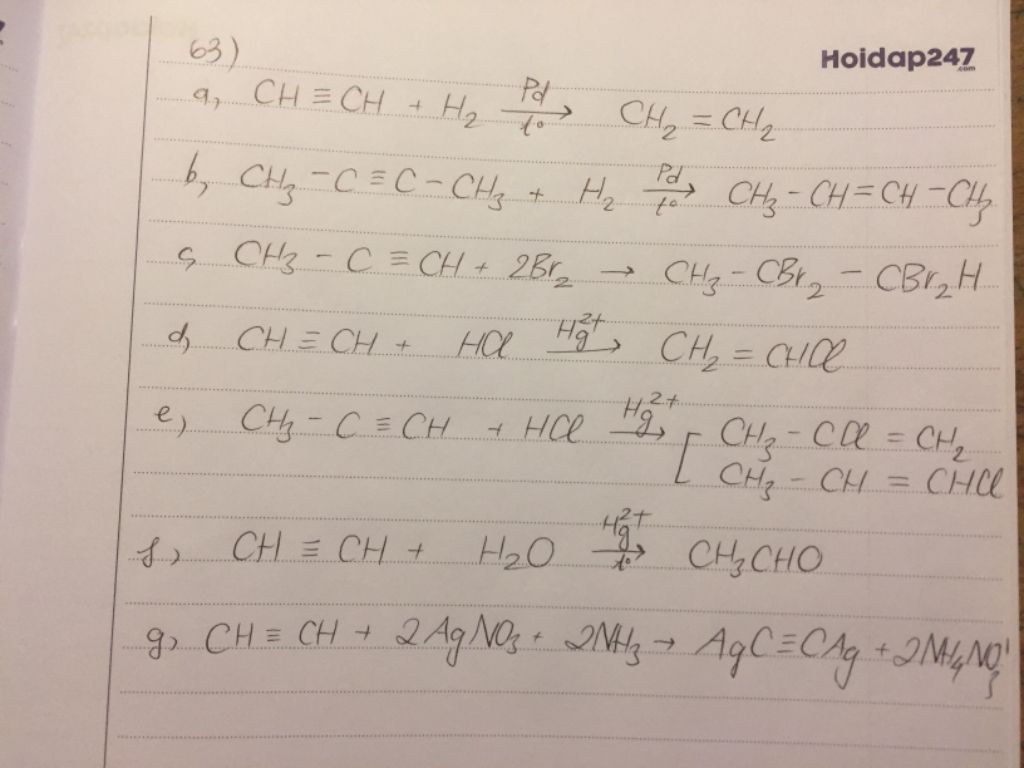 63)
Hoidap247
.com
a, CH ≡ CH + H₂ →(Pd, t°) CH₂ = CH₂
b, CH₃ – C ≡ C – CH₃ + H₂ →(Pd, t°) CH₃ – CH = CH – CH₃
c, CH₃ – C ≡ CH + 2Br₂ → CH₃ – CBr₂ – CBr₂H
d, CH ≡ CH + HCl →(Hg²⁺) CH₂ = CHCl
e, CH₃ – C ≡ CH + HCl →(Hg²⁺) [ CH₃ – CCl = CH₂
CH₃ – CH = CHCl
f, CH ≡ CH + H₂O →(Hg²⁺, t°) CH₃CHO
g, CH ≡ CH + 2AgNO₃ + 2NH₃ → AgC≡CAg + 2NH₄NO₃